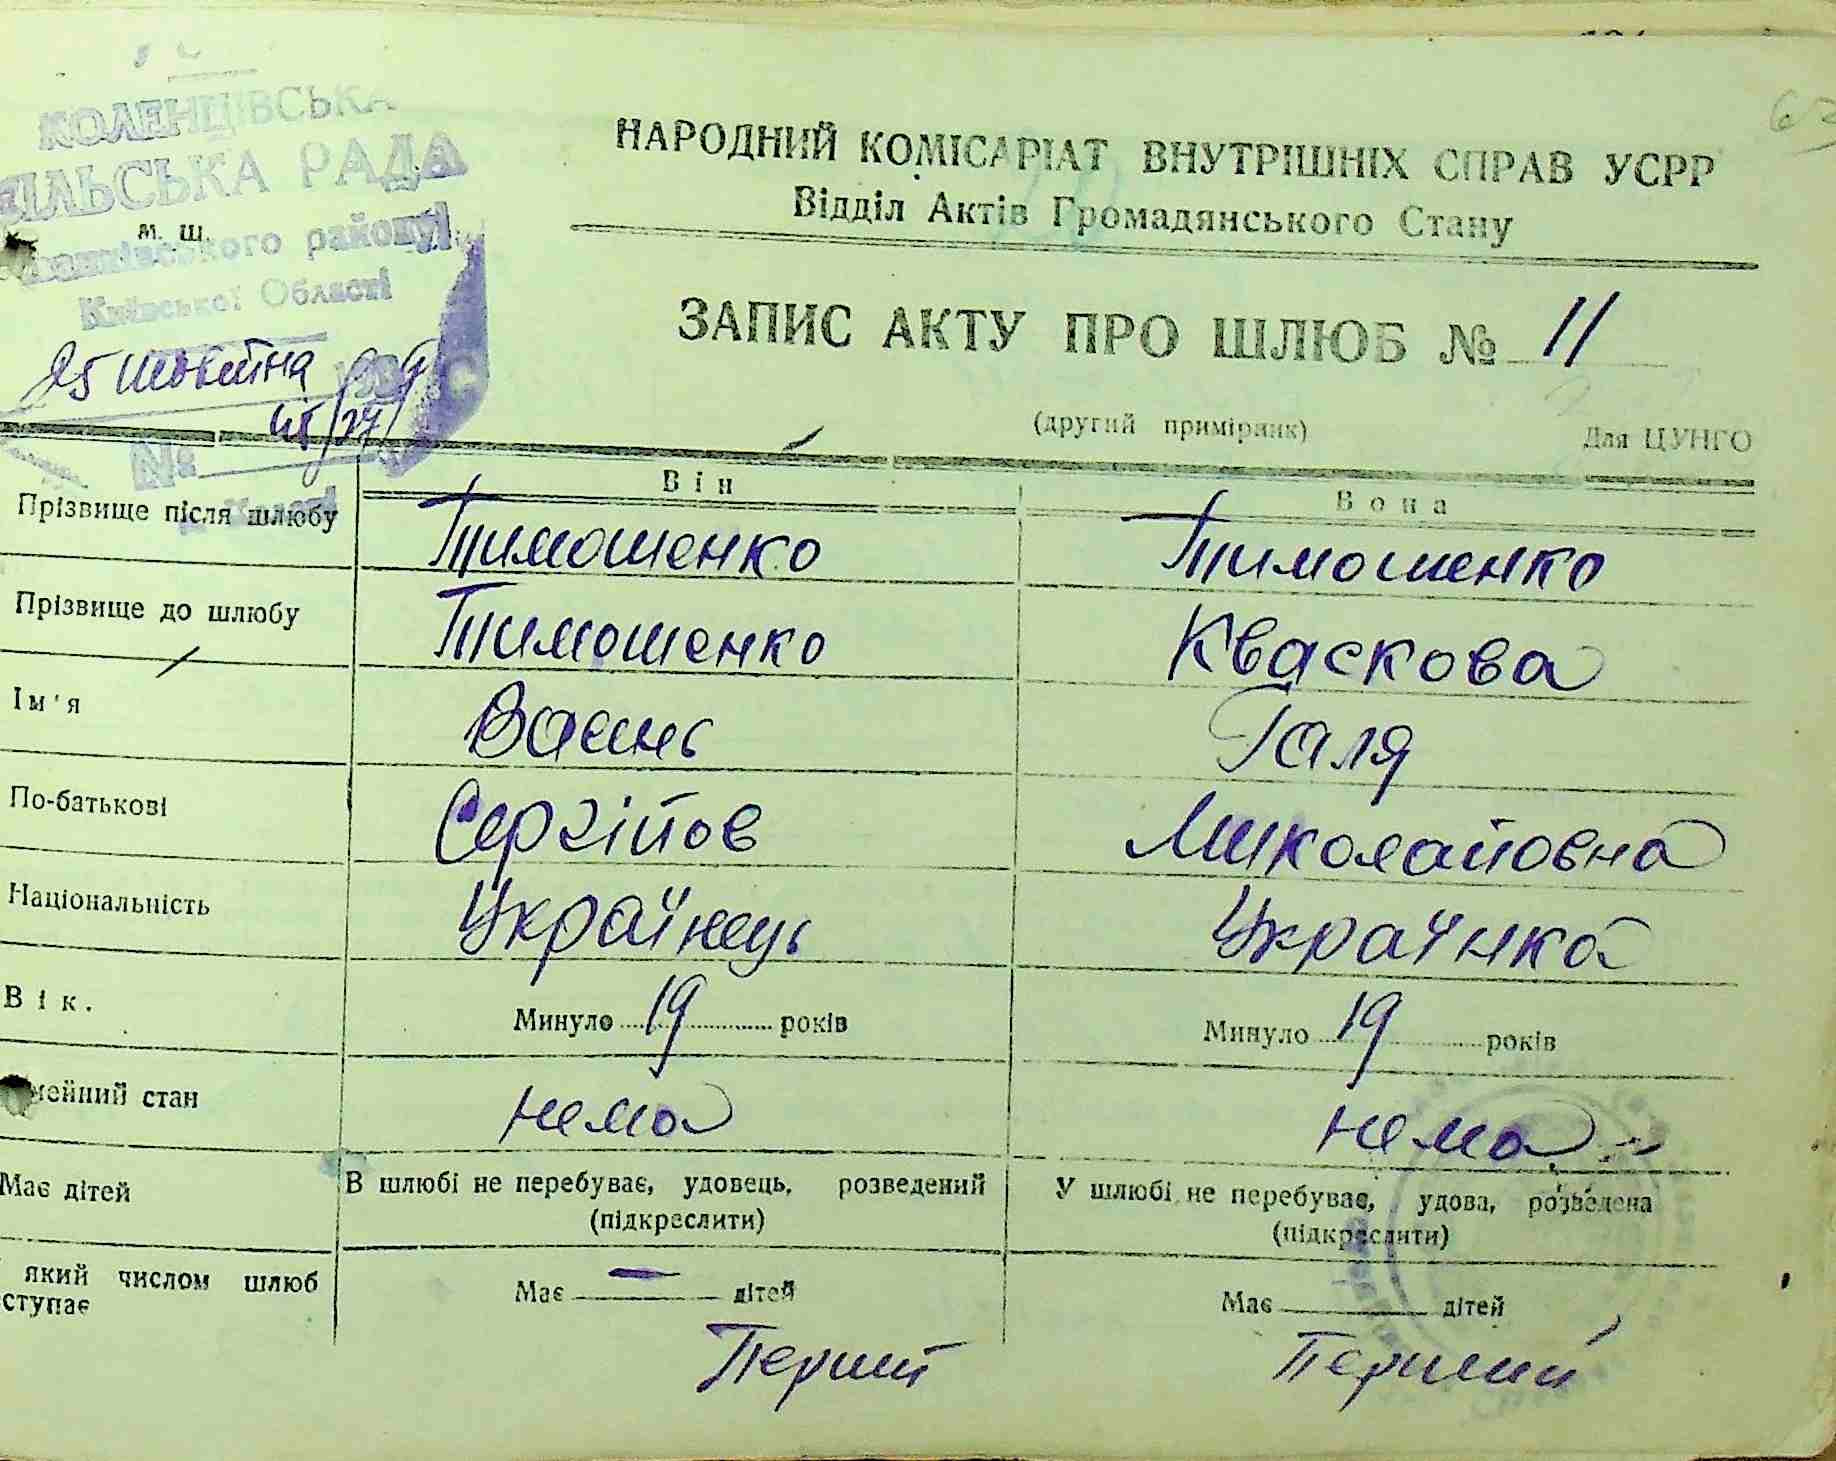 КОЛЕНЦІВСЬКА
СІЛЬСЬКА РАДА
м. ш.
району
Київської Області
25 жовтня
№
63
НАРОДНИЙ КОМІСАРІАТ ВНУТРІШНІХ СПРАВ УСРР
Відділ Актів Громадянського Стану
ЗАПИС АКТУ ПРО ШЛЮБ № 11
(другий примірник) Для ЦУНГО
Він Вона
Прізвище після шлюбу Тимошенко Тимошенко
Прізвище до шлюбу Тимошенко Кваскова
Ім'я Галя
По-батькові Сергійов Миколайовна
Національність Українець Українка
Вік. Минуло 19 років Минуло 19 років
мейний стан нема нема
Має дітей В шлюбі не перебуває, удовець, розведений У шлюбі не перебуває, удова, розведена
(підкреслити) (підкреслити)
який числом шлюб
ступає Має — дітей Має дітей
Перший Перший